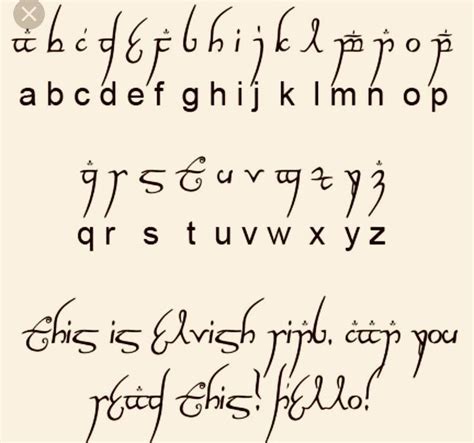 a b c d e f g h i j k l m n o p
a b c d e f g h i j k l m n o p
q r s t u v w x y z
q r s t u v w x y z
this is elvish ring, can you
read this! hello!